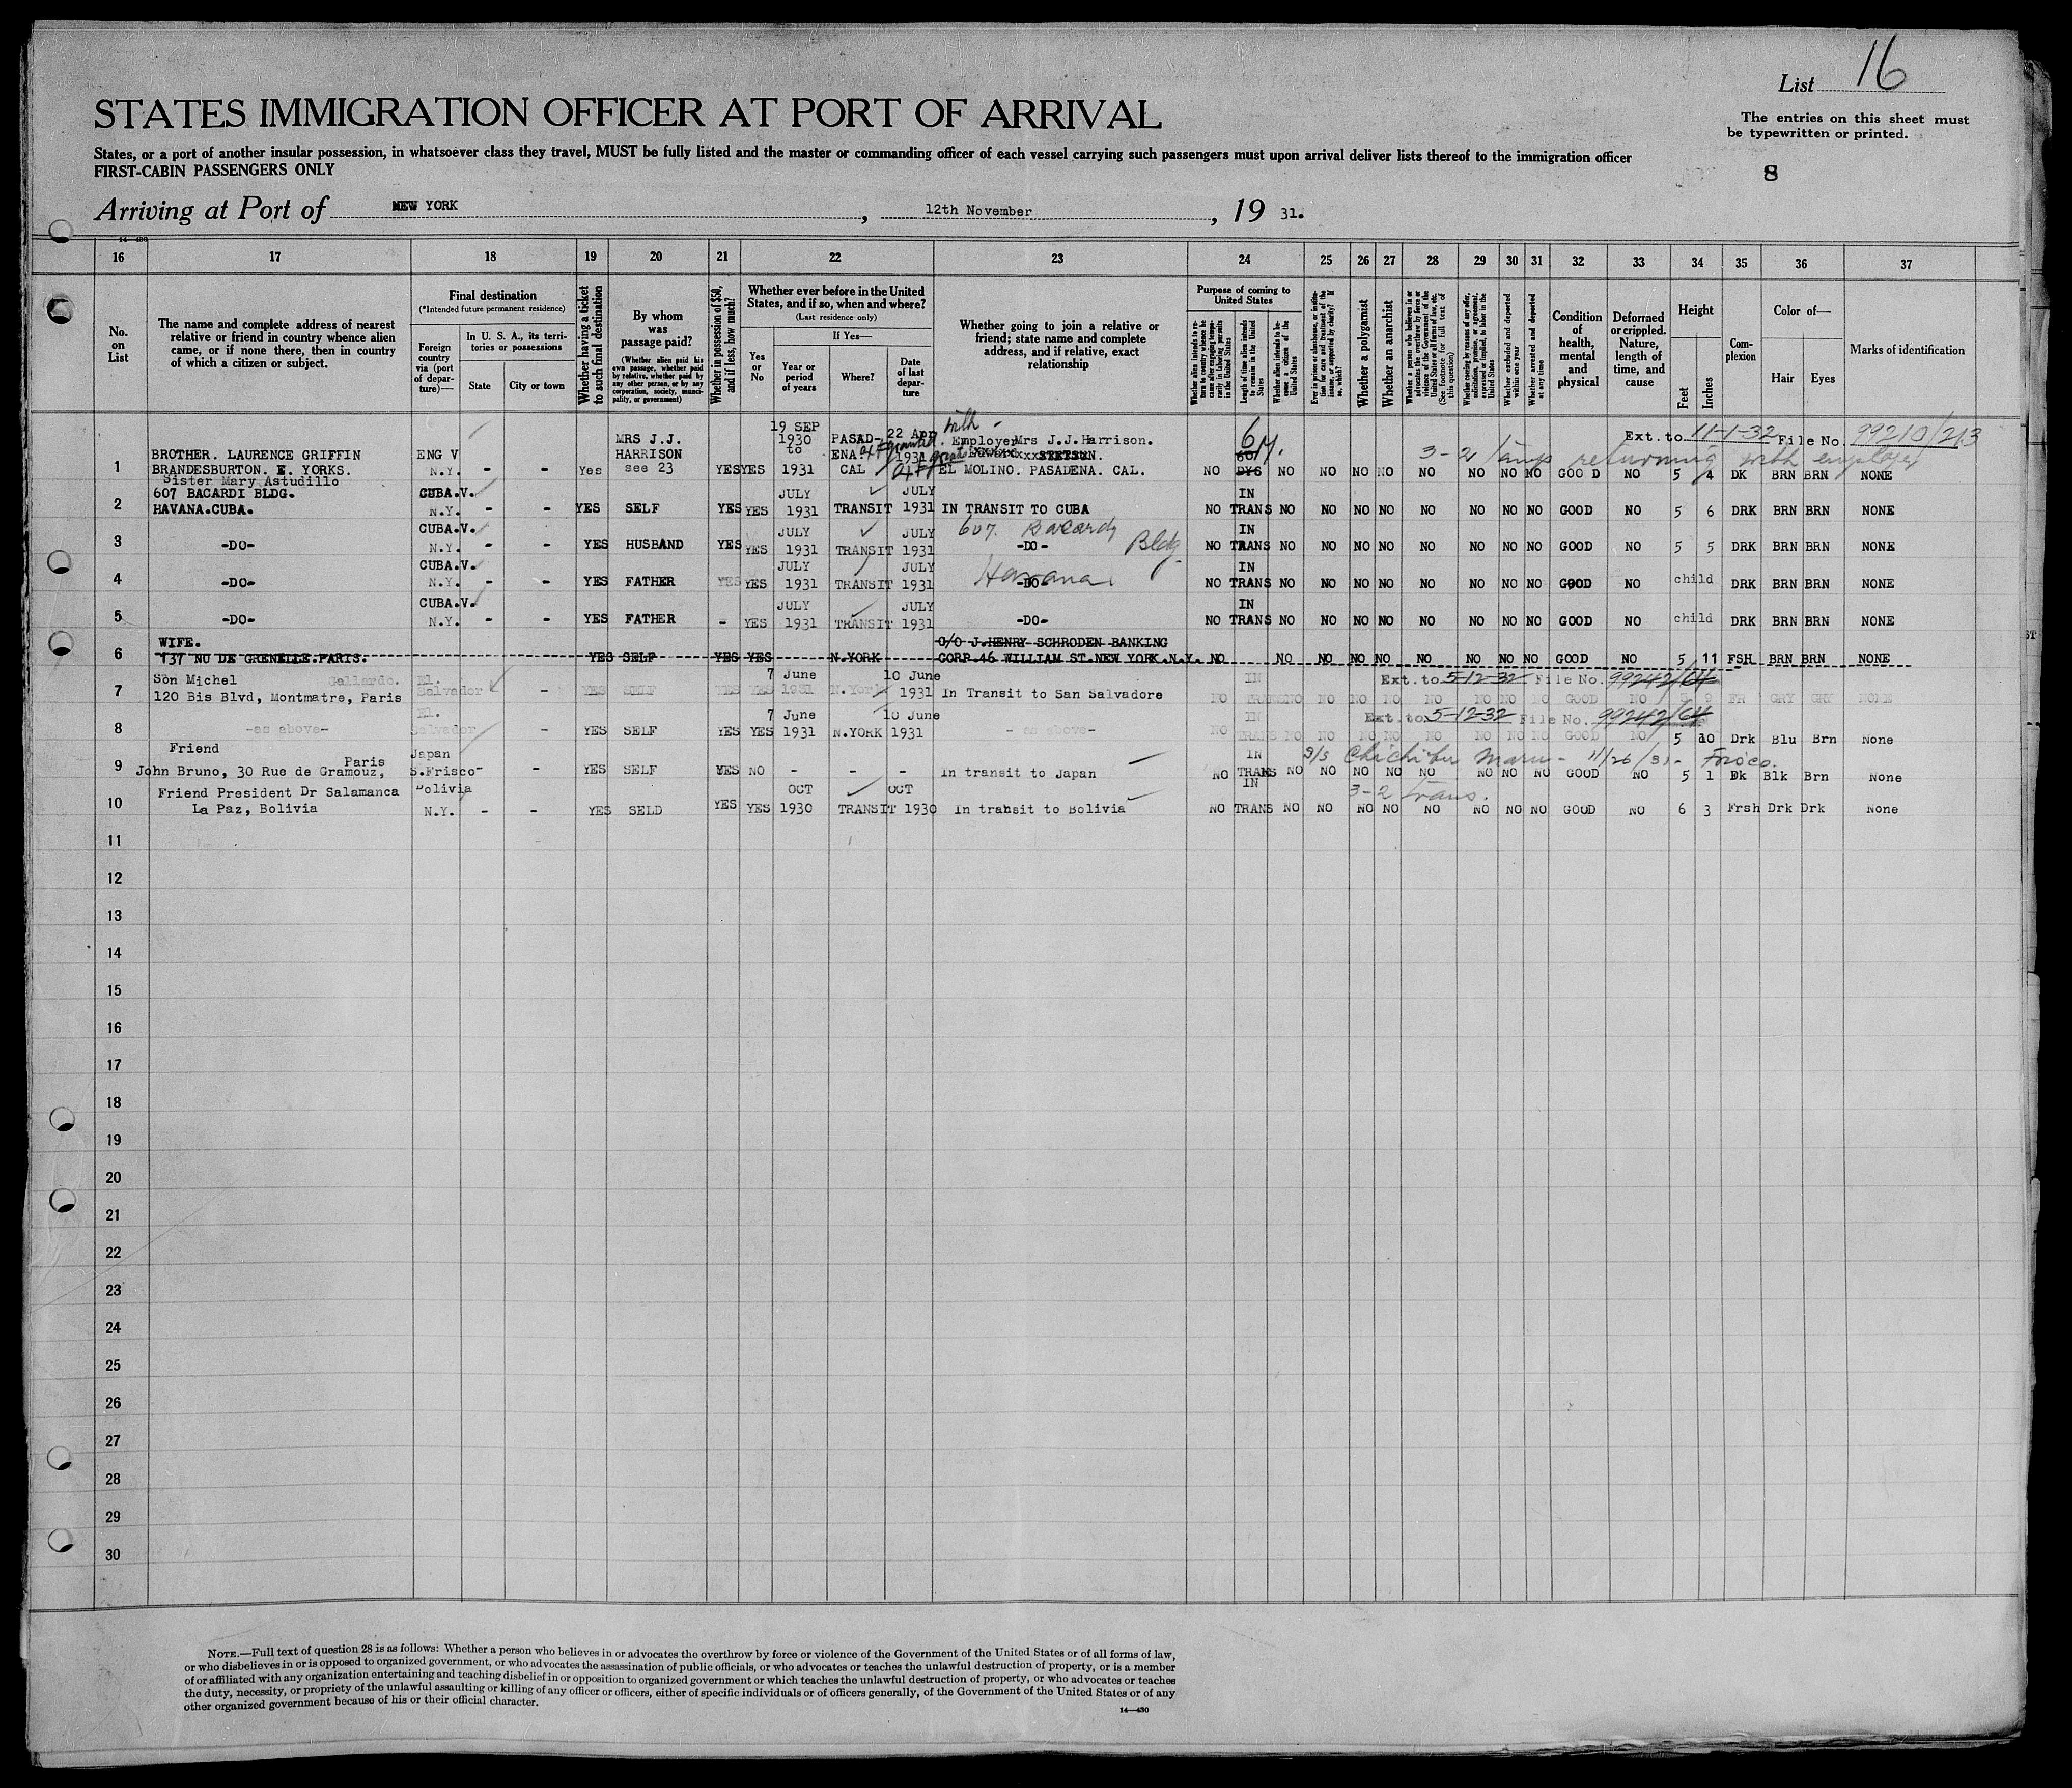 List 16
STATES IMMIGRATION OFFICER AT PORT OF ARRIVAL
The entries on this sheet must
be typewritten or printed.
States, or a port of another insular possession, in whatsoever class they travel, MUST be fully listed and the master or commanding officer of each vessel carrying such passengers must upon arrival deliver lists thereof to the immigration officer
FIRST-CABIN PASSENGERS ONLY
8
Arriving at Port of NEW YORK, 12th November, 19 31.
14-430
16 17 18 19 20 21 22 23 24 25 26 27 28 29 30 31 32 33 34 35 36 37
No. on List
The name and complete address of nearest relative or friend in country whence alien came, or if none there, then in country of which a citizen or subject.
Final destination
(*Intended future permanent residence)
Foreign country via (port of departure)—
In U. S. A., its territories or possessions
State
City or town
Whether having a ticket to such final destination
By whom was passage paid?
(Whether alien paid his own passage, whether paid by relative, whether paid by any other person, or by any corporation, society, municipality, or government)
Whether in possession of $50, and if less, how much?
Whether ever before in the United States, and if so, when and where?
(Last residence only)
Yes or No
If Yes—
Year or period of years
Where?
Date of last departure
Whether going to join a relative or friend; state name and complete address, and if relative, exact relationship
Purpose of coming to United States
Whether alien intends to return to country whence he came after engaging temporarily in laboring pursuits in the United States
Length of time alien intends to remain in the United States
Whether alien intends to become a citizen of the United States
Ever in prison or almshouse, or institution for care and treatment of the insane, or supported by charity? If so, which?
Whether a polygamist
Whether an anarchist
Whether a person who believes in or advocates the overthrow by force or violence of the Government of the United States or all forms of law, etc. (See footnote for full text of this question)
Whether coming by reason of any offer, solicitation, promise, or agreement, expressed or implied, to labor in the United States
Whether excluded and deported within one year
Whether arrested and deported at any time
Condition of health, mental and physical
Deformed or crippled. Nature, length of time, and cause
Height
Feet
Inches
Complexion
Color of—
Hair
Eyes
Marks of identification
19 SEP 22 Apr with
MRS J.J. 1930 PASAD- Employer Mrs J.J.Harrison. 6 M. Ext. to 11-1-32 File No. 99210/213
BROTHER. LAURENCE GRIFFIN ENG V HARRISON to ENA. 1931 STETSUN. 60 3-2 temp returning with employer
1 BRANDESBURTON. E. YORKS. N.Y. - - Yes see 23 YES YES 1931 CAL EL MOLINO. PASADENA. CAL. NO DYS NO NO NO NO NO NO NO NO GOOD NO 5 4 DK BRN BRN NONE
Sister Mary Astudillo
607 BACARDI BLDG. CUBA.V. JULY JULY IN
2 HAVANA.CUBA. N.Y. - - YES SELF YES YES 1931 TRANSIT 1931 IN TRANSIT TO CUBA NO TRANS NO NO NO NO NO NO NO NO GOOD NO 5 6 DRK BRN BRN NONE
CUBA.V. JULY JULY 607. Bacardy Bldg. IN
3 -DO- N.Y. - - YES HUSBAND YES YES 1931 TRANSIT 1931 -DO- NO TRANS NO NO NO NO NO NO NO NO GOOD NO 5 5 DRK BRN BRN NONE
CUBA.V. JULY JULY Havana IN
4 -DO- N.Y. - - YES FATHER YES YES 1931 TRANSIT 1931 -DO- NO TRANS NO NO NO NO NO NO NO NO GOOD NO child DRK BRN BRN NONE
CUBA.V. JULY JULY IN
5 -DO- N.Y. - - YES FATHER - YES 1931 TRANSIT 1931 -DO- NO TRANS NO NO NO NO NO NO NO NO GOOD NO child DRK BRN BRN NONE
WIFE. C/O J.HENRY SCHRODEN BANKING
6 137 NU DE GRENELLE.PARIS. YES SELF YES YES N.YORK CORP.46 WILLIAM ST.NEW YORK.N.Y. NO NO NO NO NO NO NO NO NO GOOD NO 5 11 FSH BRN BRN NONE
Son Michel Gallardo. El. 7 June 10 June IN Ext. to 5-12-32 File No. 99242/64
7 120 Bis Blvd, Montmatre, Paris Salvador - YES SELF YES YES 1931 N.York 1931 In Transit to San Salvadore NO TRANS NO NO NO NO NO NO NO NO GOOD NO 5 9 FR GRY GRY NONE
El. 7 June 10 June IN Ext. to 5-12-32 File No. 99242/64
8 -as above- Salvador - YES SELF YES YES 1931 N.YORK 1931 - as above- NO TRANS NO NO NO NO NO NO NO NO GOOD NO 5 10 Drk Blu Brn None
Friend Paris Japan IN S/S Chichibu Maru - 11/26/31 - Frisco.
9 John Bruno, 30 Rue de Gramouz, S.Frisco- - YES SELF YES NO - - - In transit to Japan NO TRANS NO NO NO NO NO NO NO NO GOOD NO 5 1 Dk Blk Brn None
Friend President Dr Salamanca Bolivia OCT OCT IN 3-2 trans.
10 La Paz, Bolivia N.Y. - - YES SELD YES YES 1930 TRANSIT 1930 In trabsit to Bolivia NO TRANS NO NO NO NO NO NO NO NO GOOD NO 6 3 Frsh Drk Drk None
11
12
13
14
15
16
17
18
19
20
21
22
23
24
25
26
27
28
29
30
NOTE.—Full text of question 28 is as follows: Whether a person who believes in or advocates the overthrow by force or violence of the Government of the United States or of all forms of law,
or who disbelieves in or is opposed to organized government, or who advocates the assassination of public officials, or who advocates or teaches the unlawful destruction of property, or is a member
of or affiliated with any organization entertaining and teaching disbelief in or opposition to organized government or which teaches the unlawful destruction of property, or who advocates or teaches
the duty, necessity, or propriety of the unlawful assaulting or killing of any officer or officers, either of specific individuals or of officers generally, of the Government of the United States or of any
other organized government because of his or their official character.
14—430